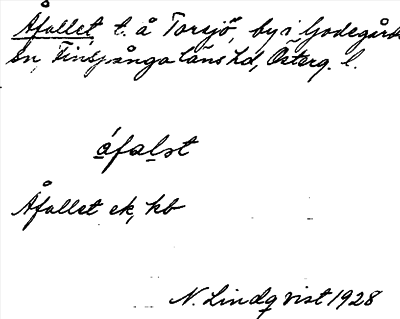 Åfallet t. å Torsjö, by i Godegårds
sn, Finspånga läns hd, Österg. l.
áfalst
Åfallet ek, kb
N. Lindqvist 1928